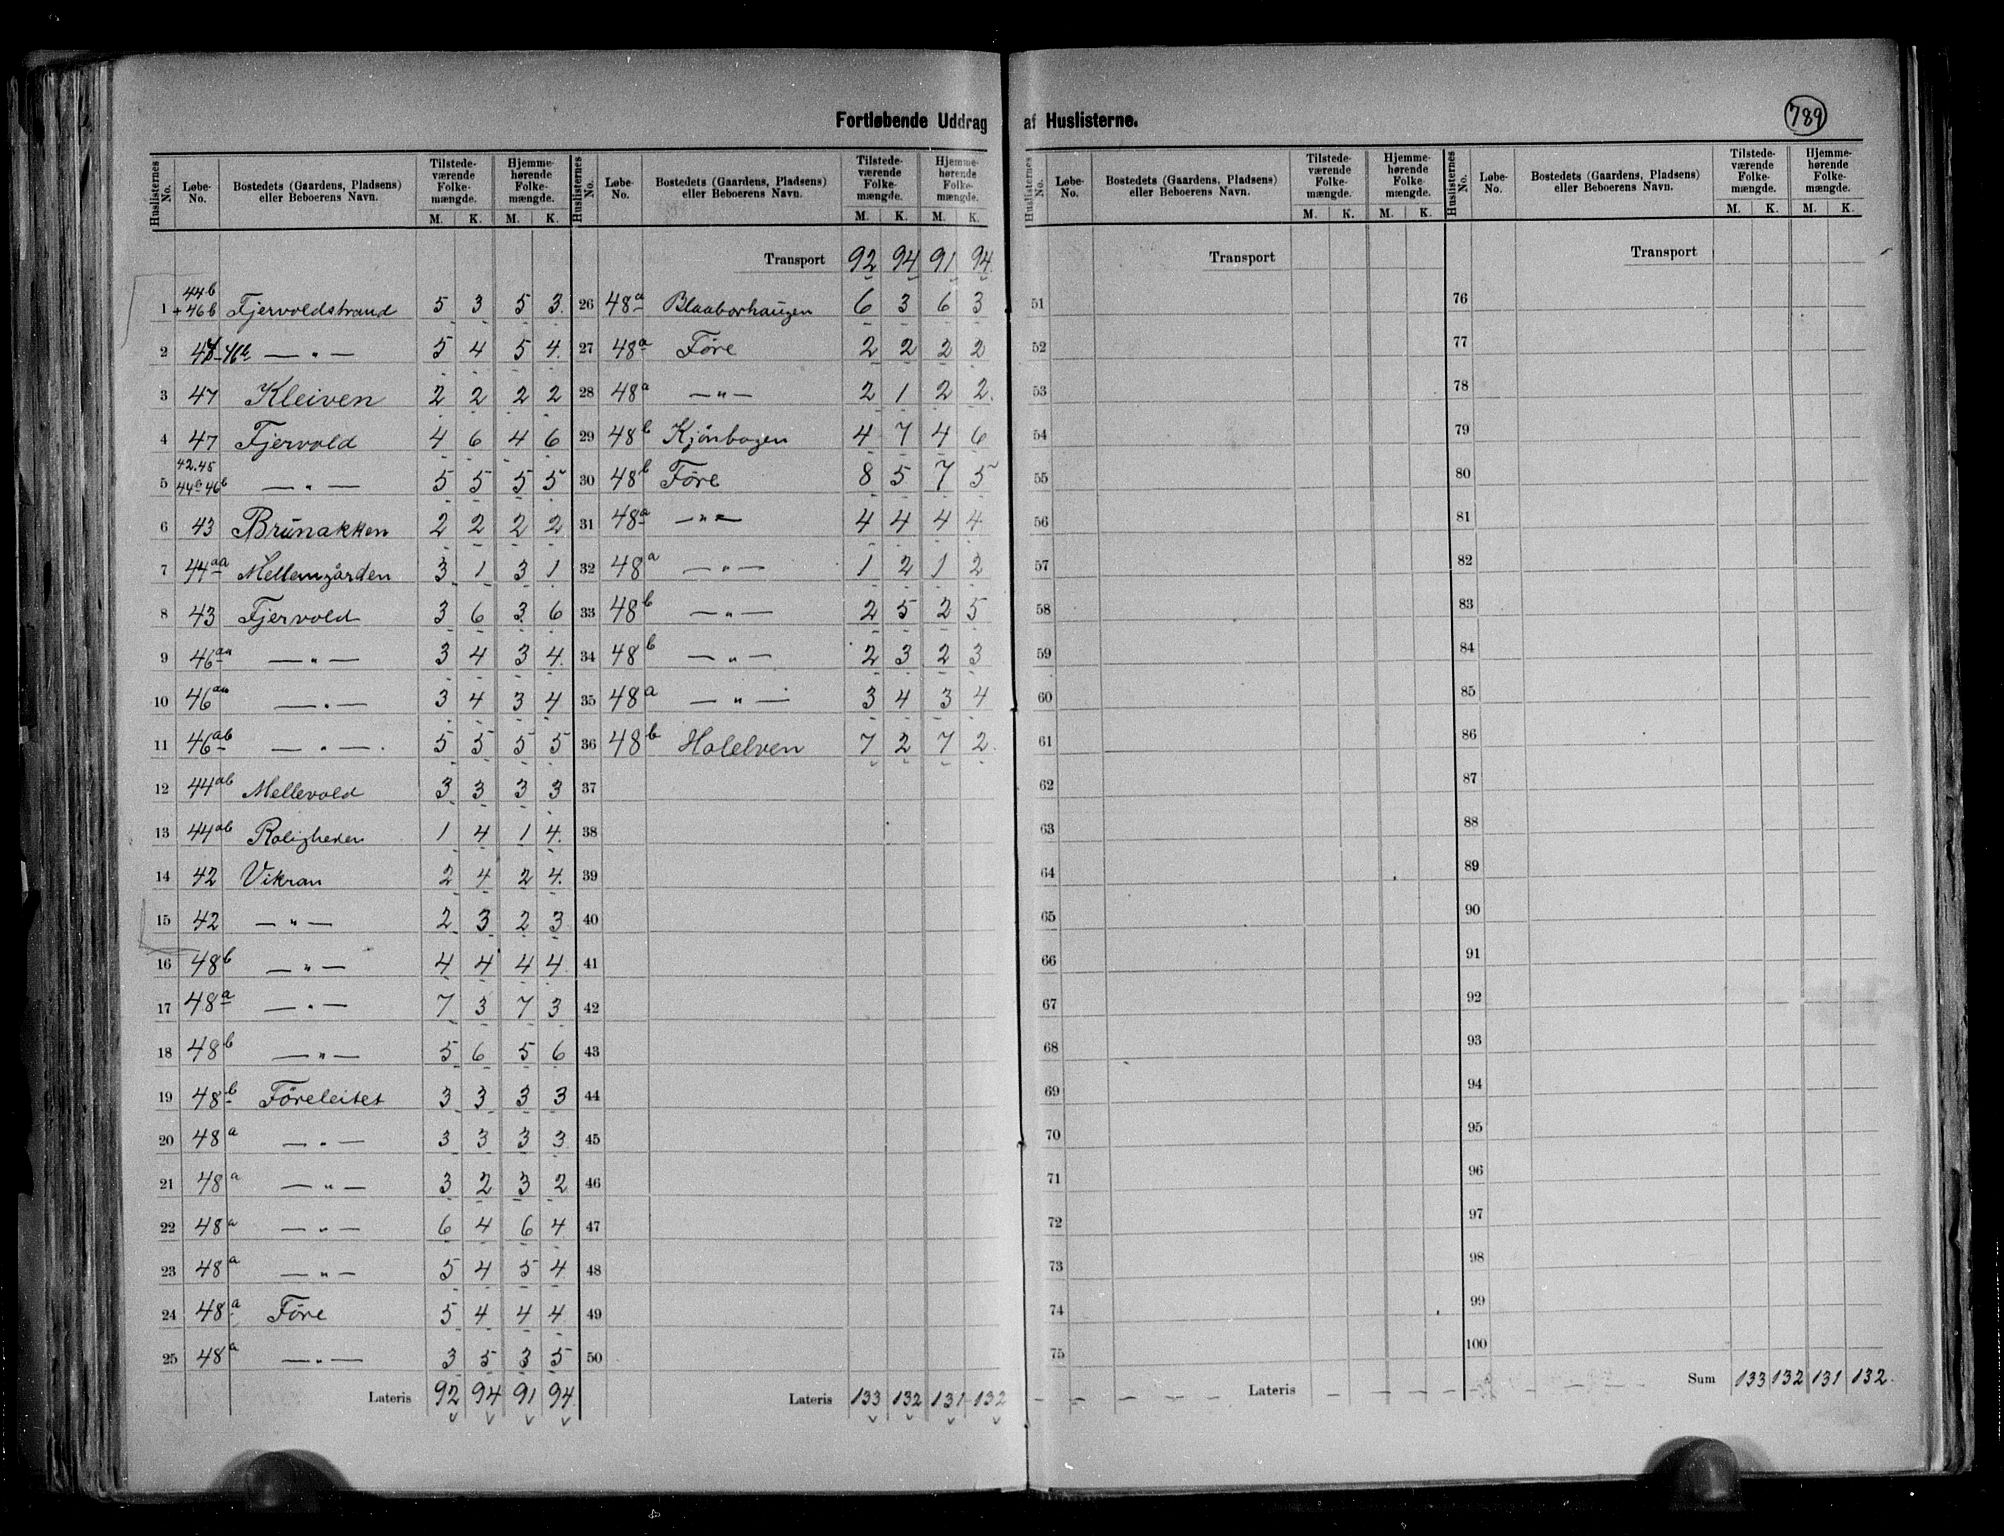 Fortløbende Uddrag af Huslisterne.
789
Huslisternes No. Løbe-No. Bostedets (Gaardens, Pladsens) eller Beboerens Navn. Tilstede-værende Folke-mængde. M. K. Hjemme-hørende Folke-mængde. M. K.
1 44b + 46b Fjervoldstrand 5 3 5 3
2 — „ — 5 4 5 4
3 47 Kleiven 2 2 2 2
4 47 Fjervold 4 6 4 6
5 42.45 44a 46b — „ — 5 5 5 5
6 43 Brunakken 2 2 2 2
7 44aa Mellemgården 3 1 3 1
8 43 Fjervold 3 6 3 6
9 46aa — „ — 3 4 3 4
10 46aa — „ — 3 4 3 4
11 46ab — „ — 5 5 5 5
12 44ab Mellevold 3 3 3 3
13 44ab Roligheden 1 4 1 4
14 42 Vikran 2 4 2 4
15 42 — „ — 2 3 2 3
16 48b — „ — 4 4 4 4
17 48a — „ — 7 3 7 3
18 48b — „ — 5 6 5 6
19 48b Föreleitet 3 3 3 3
20 48a — „ — 3 3 3 3
21 48a — „ — 3 2 3 2
22 48a — „ — 6 4 6 4
23 48a — „ — 5 4 5 4
24 48a Före 5 4 4 4
25 48a — „ — 3 5 3 5
Lateris 92 94 91 94
Huslisternes No. Løbe-No. Bostedets (Gaardens, Pladsens) eller Beboerens Navn. Tilstede-værende Folke-mængde. M. K. Hjemme-hørende Folke-mængde. M. K.
Transport 92 94 91 94
26 48a Blaaborhaugen 6 3 6 3
27 48a Före 2 2 2 2
28 48a — „ — 2 1 2 2
29 48b Kjönbogen 4 7 4 6
30 48b Före 8 5 7 5
31 48a — „ — 4 4 4 4
32 48a — „ — 1 2 1 2
33 48b — „ — 2 5 2 5
34 48b — „ — 2 3 2 3
35 48a — „ — 3 4 3 4
36 48b Holelven 7 2 7 2
37
38
39
40
41
42
43
44
45
46
47
48
49
50
Lateris 133 132 131 132
Huslisternes No. Løbe-No. Bostedets (Gaardens, Pladsens) eller Beboerens Navn. Tilstede-værende Folke-mængde. M. K. Hjemme-hørende Folke-mængde. M. K.
Transport
51
52
53
54
55
56
57
58
59
60
61
62
63
64
65
66
67
68
69
70
71
72
73
74
75
Lateris – – – –
Huslisternes No. Løbe-No. Bostedets (Gaardens, Pladsens) eller Beboerens Navn. Tilstede-værende Folke-mængde. M. K. Hjemme-hørende Folke-mængde. M. K.
Transport
76
77
78
79
80
81
82
83
84
85
86
87
88
89
90
91
92
93
94
95
96
97
98
99
100
Sum 133 132 131 132